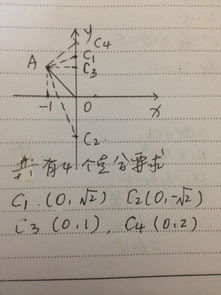 y
C4
C1
A
C3
-1
0
x
C2
共有4个点符要求
C1 (0,√2) C2(0,-√2)
C3 (0,1), C4(0,2)